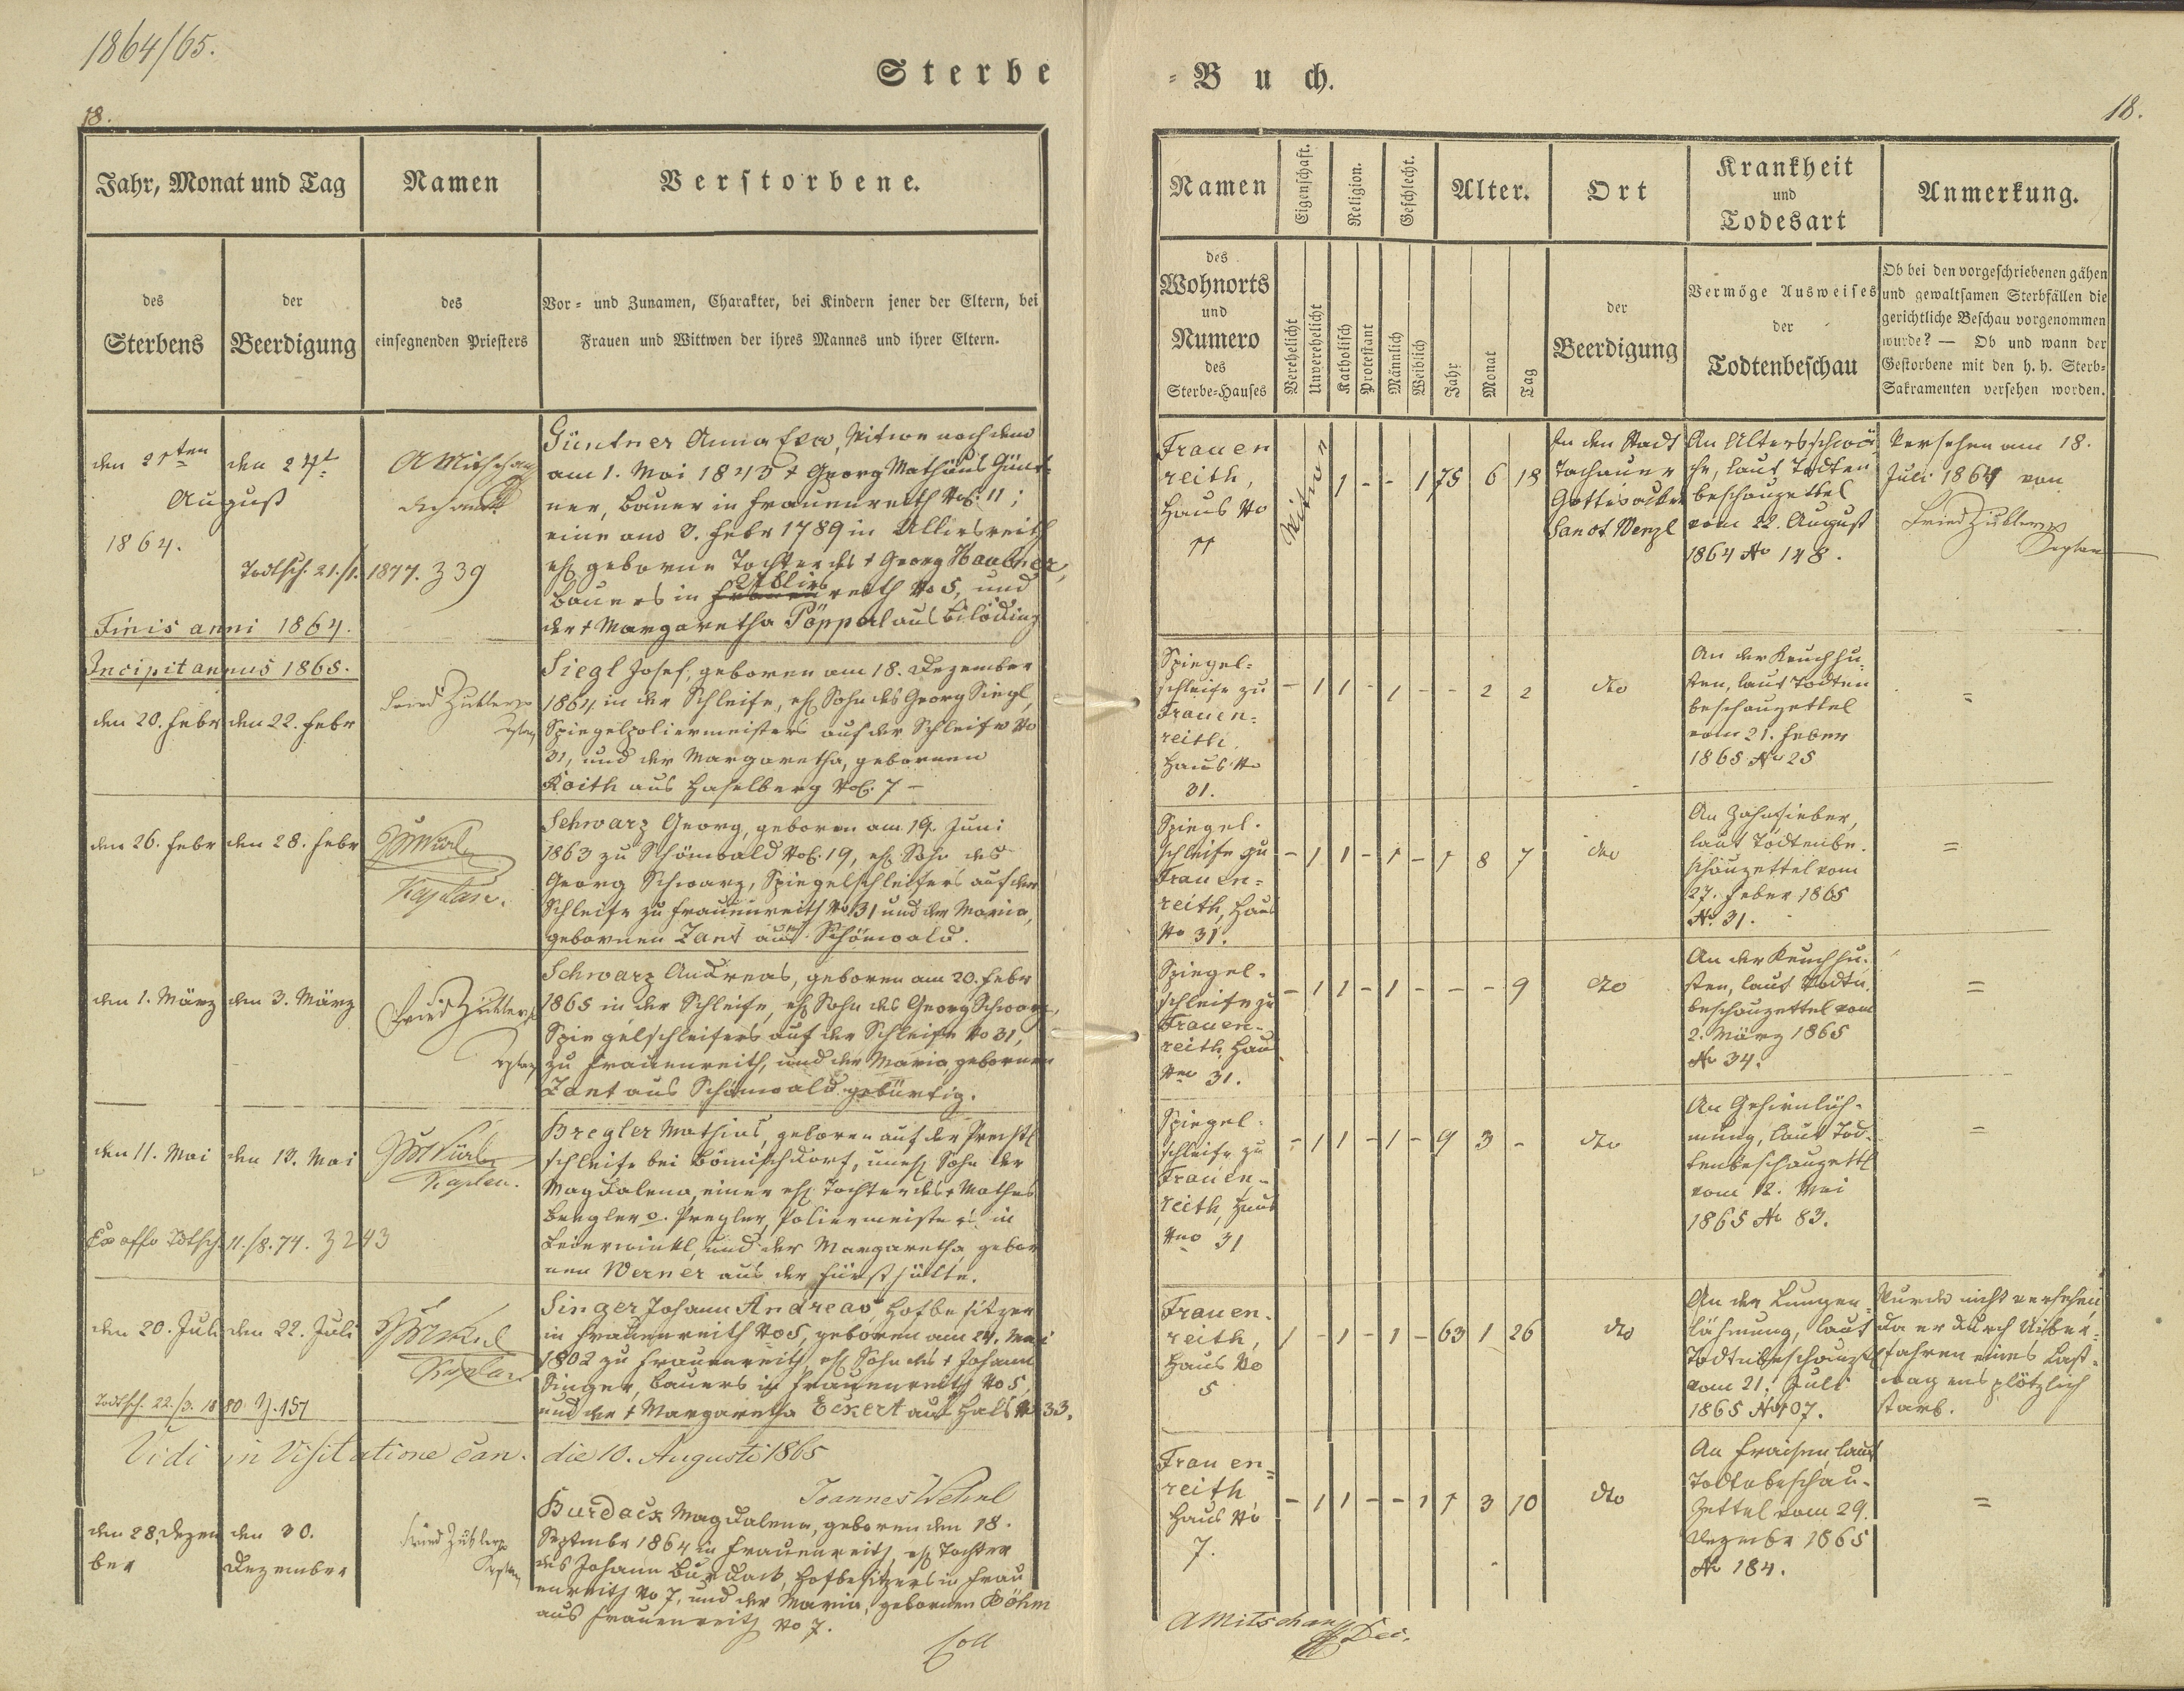 1864/65.
Sterbe
18.
Jahr, Monat und Tag
Namen
Verstorbene.
des
Sterbens
der
Beerdigung
des
einsegnenden Priesters
Vor- und Zunamen, Charakter, bei Kindern jener der Eltern, bei
Frauen und Wittwen der ihres Mannes und ihrer Eltern.
den 21ten
August
1864.
den 24t
AMitschang
Dechant
Todtsch. 21./1. 1877. Z 39
Güntner Anna Eva, Witwe nach dem
am 1. Mai 1843 † Georg Mathäus Günt-
ner, Bauer in Frauenreith No. 11;
eine am 3. Febr 1789 in Ulliesreith
ehl geborne Tochter des † Georg Haubner,
Ullies
Bauers in Frauenreith No 5, und
der † Margaretha Pöpperl aus
Finis anni 1864.
Incipit annus 1865.
den 20. Febr
den 22. Febr
Siegl Josef, geboren am 18. Dezember
1864 in der Schleife, ehl Sohn des Georg Siegl,
Spiegelpoliermeisters auf der Schleife No
31, und der Margaretha, gebornen
Roith aus Haselberg No. 7 -
den 26. Febr
den 28. Febr
Kaplan.
Schwarz Georg, geboren am 19. Juni
1863 zu Schönwald No. 19, ehl Sohn des
Georg Schwarz, Spiegelschleifers auf der
Schleife zu Frauenreith No 31 und der Maria,
gebornen Zant aus Schönwald.
den 1. März
den 3. März
Schwarz Andreas, geboren am 20. Febr
1865 in der Schleife, ehl Sohn des Georg Schwarz,
Spiegelschleifers auf der Schleife No 31,
zu Frauenreith, und der Maria gebornen
Zant aus Schönwald gebürtig.
den 11. Mai
den 13. Mai
Kaplan.
Bregler Mathias, geboren auf der
schleife bei Bömischdorf, unehl Sohn der
Magdalena, einer ehl Tochter des † Mathes
Bregler o. Pregler, Poliermeisters in
und der Margaretha gebor
nen Werner aus der Fürsthütte.
Ex offo Tdtsch. 11./8. 74. Z 243
den 20. Juli
den 22. Juli
Kaplan
Singer Johann Andreas, Hofbesitzer
in Frauenreith No 5, geboren am 24. Mai
1802 zu Frauenreith, ehl Sohn des † Johann
Singer, Bauers in Frauenreith No 5,
und der † Margaretha Eckert aus Hals No 33.
Todtsch. 22./3. 1880 Z. 157
Vidi in Visitatione can. die 10. Augusti 1865
den 28. Dezem
ber
den 30.
Dezember
Burdack Magdalena, geboren den 18.
Septmbr 1864 in Frauenreith, ehl Tochter
des Johann Burdack, Hofbesitzers in Frau
enreith No 7, und der Maria, gebornen Böhm
aus Frauenreith No 7.
Coll
-Buch.
18.
Namen
Eigenschaft.
Religion.
Geschlecht.
Alter.
Ort
Krankheit
und
Todesart
Anmerkung.
des
Wohnorts
und
Numero
des
Sterbe-Hauses
Verehelicht
Unverehelicht
Katholisch
Protestant
Männlich
Weiblich
Jahr
Monat
Tag
der
Beerdigung
Vermöge Ausweises
der
Todtenbeschau
Ob bei den vorgeschriebenen gähen
und gewaltsamen Sterbfällen die
gerichtliche Beschau vorgenommen
wurde? — Ob und wann der
Gestorbene mit den h. h. Sterb-
Sakramenten versehen worden.
Frauen
reith,
Haus No
11
Witwe
1 - - 1 75 6 18
In den Stadt
Tachauer
Gottesacker
Sanct Wenzl
An Altersschwä-
che, laut Todten
beschauzettel
vom 22. August
1864 No 148.
Versehen am 18.
Juli 1864 von
Kaplan
Spiegel-
schleife zu
Frauen-
reith,
Haus No
31.
- 1 1 - 1 - - 2 2
dto
An der Keuchhu-
sten, laut Todten
beschauzettel
vom 21. Feber
1865 No 25
=
Spiegel-
schleife zu
Frauen-
reith, Haus
No 31.
- 1 1 - 1 - 1 8 7
dto
An Zahnfieber,
laut Todtenbe-
schauzettel vom
27. Feber 1865
No. 31.
=
Spiegel-
schleife zu
Frauen-
reith, Haus
Nro 31.
- 1 1 - 1 - - - 9
dto
An der Keuchhu-
sten, laut Todtn
beschauzettel vom
2. März 1865
No 34.
=
Spiegel-
schleife zu
Frauen-
reith, Haus
Nro 31
- 1 1 - 1 - 9 3 -
dto
An Gehirnläh-
mung, laut Tod-
tenbeschauzettl
vom 12. Mai
1865 No 83.
=
Frauen-
reith,
Haus No
5
1 - 1 - 1 - 63 1 26
dto
An der Lungen-
lähmung, laut
Todtnbeschauzettl
vom 21. Juli
1865 No 107.
Wurde nicht versehen,
da er durch Uiber-
fahren eines Last-
wagens plötzlich
starb.
Frauen-
reith
Haus No
7.
- 1 1 - - 1 1 3 10
dto
An Fraisen, laut
Todtnbeschau-
zettel vom 29.
Dezembr 1865
No 184.
=
AMitschang
Dec.